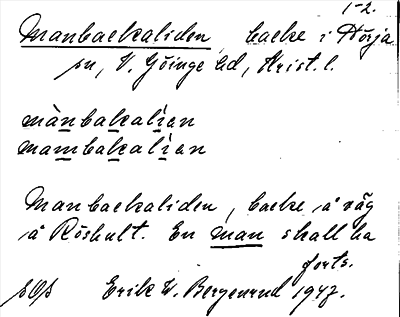 1-2.
Manbackaliden, backe i Hörja
sn, V. Göinge hd, Krist. l.
mànbakalían
mambakalían
Manbackaliden, backe å väg
å Röshult. En man skall ha
forts.
Erik W. Bergenrud 1947.